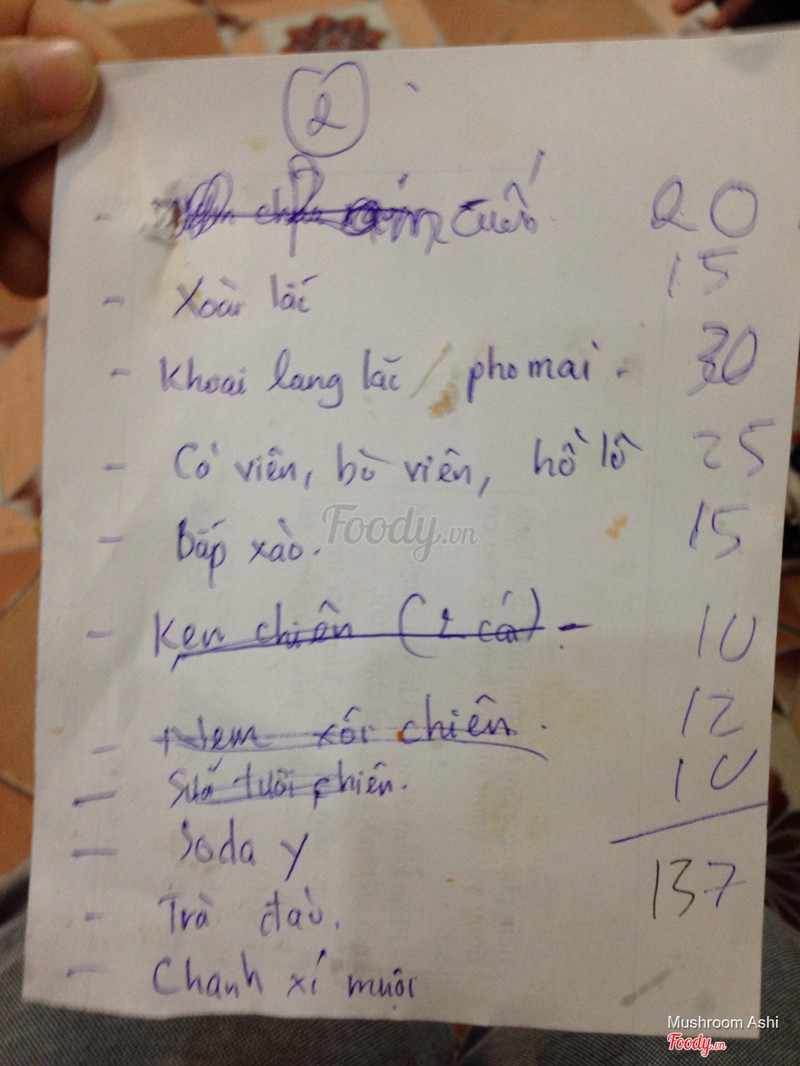 2
- cuốn 20
- Xoài lắc 15
- Khoai lang lắc / pho mai - 30
- Cá viên, bò viên, hồ lô 25
- Bắp xào. 15
- Ken chiên (2 cái) - 10
- Nem xối chiên. 12
- Sữa tươi chiên. 10
- Soda Y
137
- Trà đào.
- Chanh xí muội
Foody.vn
Mushroom Ashi
Foody.vn